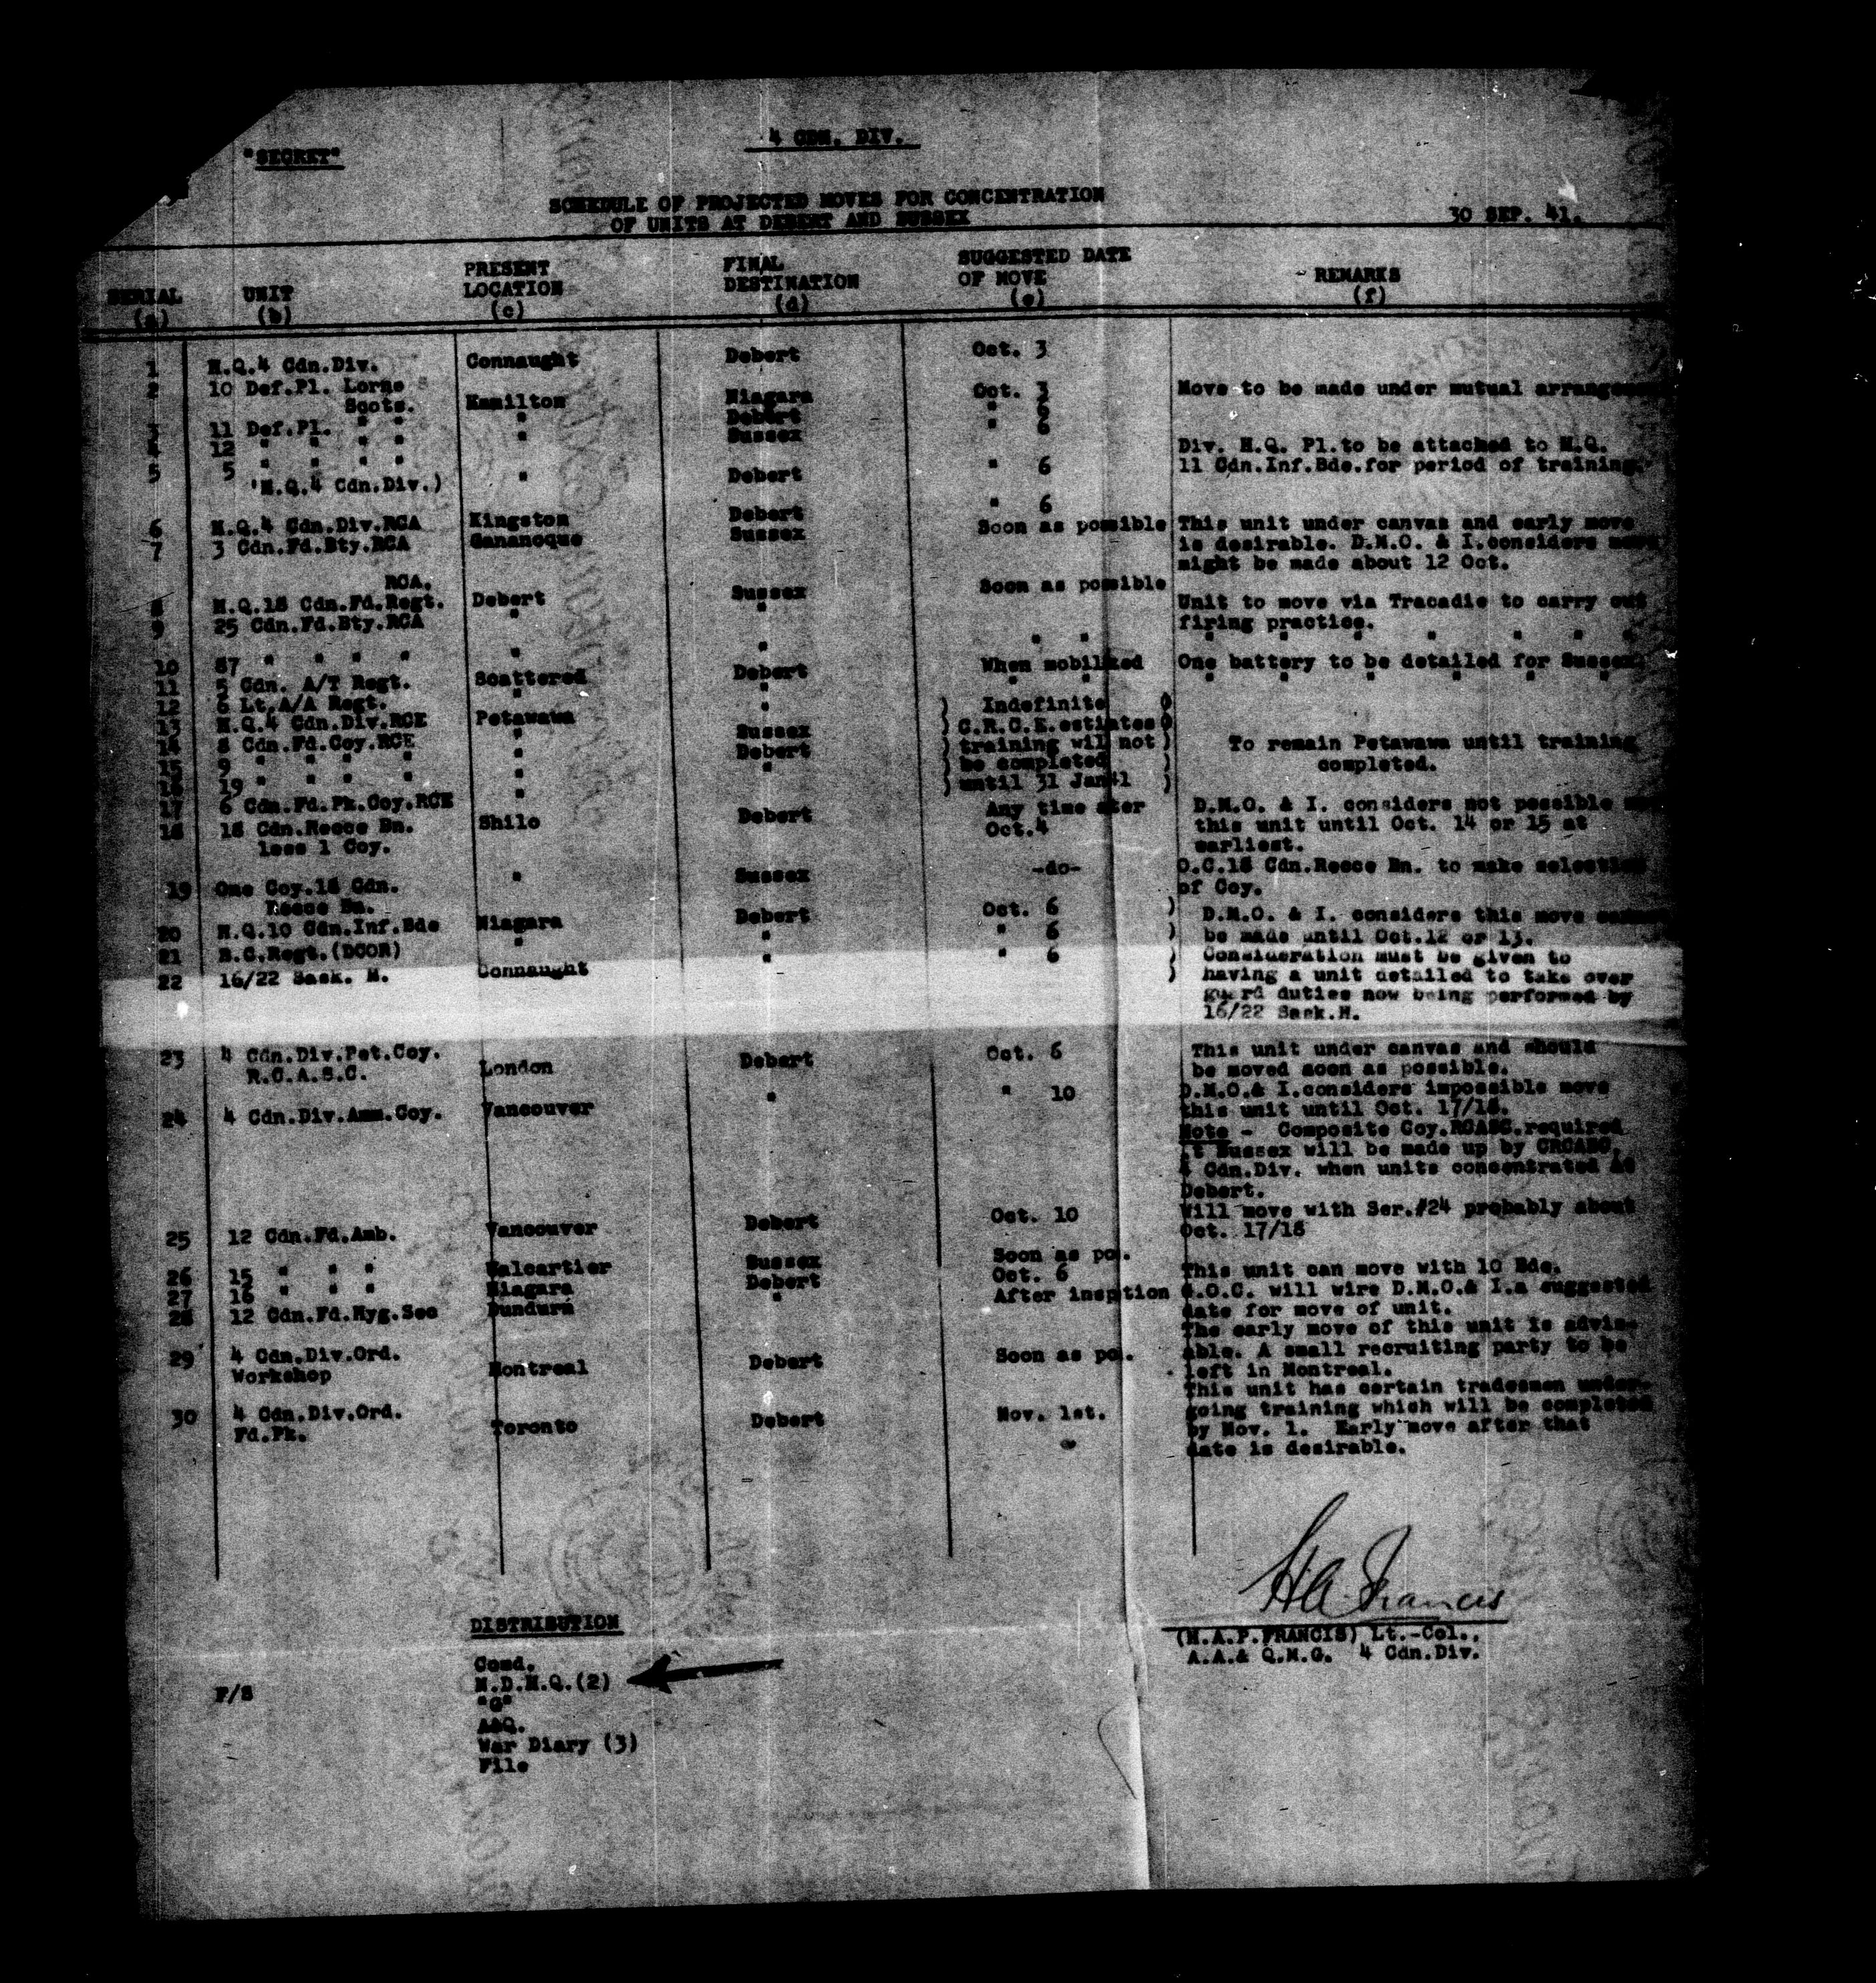 "SECRET"
4 CDN. DIV.
SCHEDULE OF PROJECTED MOVES FOR CONCENTRATION
OF UNITS AT DEBERT AND SUSSEX
30 SEP. 41.
SERIAL (a) UNIT (b) PRESENT LOCATION (c) FINAL DESTINATION (d) SUGGESTED DATE OF MOVE (e) REMARKS (f)
1 H.Q.4 Cdn.Div. Connaught Debert Oct. 3
2 10 Def.Pl. Lorne Scots. Hamilton Niagara Oct. 3 Move to be made under mutual
3 11 Def.Pl. " " " Debert " 6
4 12 " " " " " Sussex " 6
5 5 " " " " " Debert " 6 Div. H.Q. Pl.to be attached to H.Q.
'H.Q.4 Cdn.Div.) 11 Cdn.Inf.Bde.for period of training.
6 H.Q.4 Cdn.Div.RCA Kingston Debert " 6
7 3 Cdn.Fd.Bty.RCA Gananoque Sussex Soon as possible This unit under canvas and early move
is desirable. D.M.O. & I.considers
might be made about 12 Oct.
8 H.Q.18 Cdn.Fd.Regt. RCA. Debert Sussex Soon as possible
9 25 Cdn.Fd.Bty.RCA " " Unit to move via Tracadie to carry out
firing practice.
10 87 " " " " " " " " " " " " " " "
11 5 Cdn. A/T Regt. Scattered Debert When mobilized One battery to be detailed for Sussex.
12 6 Lt.A/A Regt. " " " " " " " " " "
13 H.Q.4 Cdn.Div.RCE Petawawa " Indefinite
14 8 Cdn.Fd.Coy.RCE " Sussex C.R.C.E.estimates
15 9 " " " " " Debert training will not To remain Petawawa until training
16 19 " " " " " " be completed completed.
17 6 Cdn.Fd.Pk.Coy.RCE " until 31 Jan41
18 18 Cdn.Recce Bn. Shilo Debert Any time after D.M.O. & I. considers not possible
less 1 Coy. Oct.4 this unit until Oct. 14 or 15 at
earliest.
19 One Coy.18 Cdn. " Sussex -do- O.C.18 Cdn.Recce Bn. to make selection
Recce Bn. of Coy.
20 H.Q.10 Cdn.Inf.Bde Niagara Debert Oct. 6 D.M.O. & I. considers this move
21 B.C.Regt.(DCOR) " " " 6 be made until Oct.12 or 13.
22 16/22 Sask. H. Connaught " " 6 Consideration must be given to
having a unit detailed to take over
guard duties now being performed by
16/22 Sask.H.
23 4 Cdn.Div.Pet.Coy. London Debert Oct. 6 This unit under canvas and should
R.C.A.S.C. be moved soon as possible.
24 4 Cdn.Div.Amm.Coy. Vancouver " " 10 D.M.O.& I.considers impossible move
this unit until Oct. 17/18.
Note - Composite Coy.RCASC.required
at Sussex will be made up by CRCASC,
4 Cdn.Div. when units concentrated at
Debert.
25 12 Cdn.Fd.Amb. Vancouver Debert Oct. 10 Will move with Ser.#24 probably about
Oct. 17/18
26 15 " " " Valcartier Sussex Soon as po.
27 16 " " " Niagara Debert Oct. 6 This unit can move with 10 Bde.
28 12 Cdn.Fd.Hyg.Sec Dundurn " After insption G.O.C. will wire D.M.O.& I.a suggested
date for move of unit.
29 4 Cdn.Div.Ord. Montreal Debert Soon as po. The early move of this unit is advis-
Workshop able. A small recruiting party to be
left in Montreal.
30 4 Cdn.Div.Ord. Toronto Debert Nov. 1st. This unit has certain tradesmen under-
Fd.Pk. going training which will be completed
by Nov. 1. Early move after that
date is desirable.
H A Francis
(H.A.P.FRANCIS) Lt.-Col.,
A.A.& Q.M.G. 4 Cdn.Div.
DISTRIBUTION
Comd.
N.D.H.Q.(2)
"G"
A&Q.
War Diary (3)
File
F/S